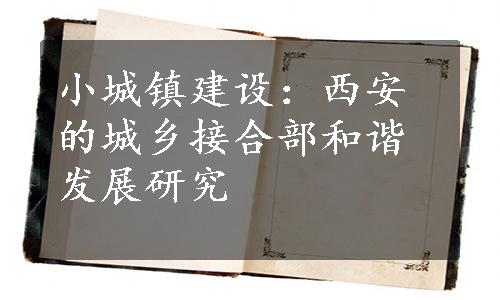 小城镇建设：西安
的城乡接合部和谐
发展研究